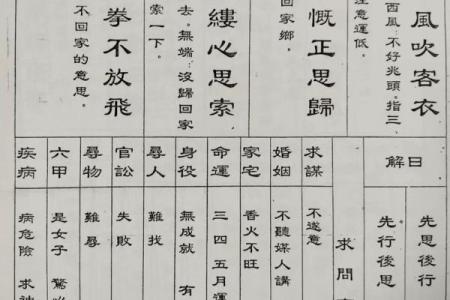 風吹客衣
西風:不好兆頭。指三、
注意運低。
慨正思歸
回家鄉。
縷心思索
去。無端:沒歸回家
索一下。
拳不放飛
不回家的意思。
日解
先思後行
先行後思
求問
求謀 不遂意
婚姻 不聽媒人講
家宅 香火不旺
命運 三四五月運
身役 無成就 有
尋人 難找
官訟 失敗
尋物 難尋
六甲 是女子 驚
疾病 病危險 求神